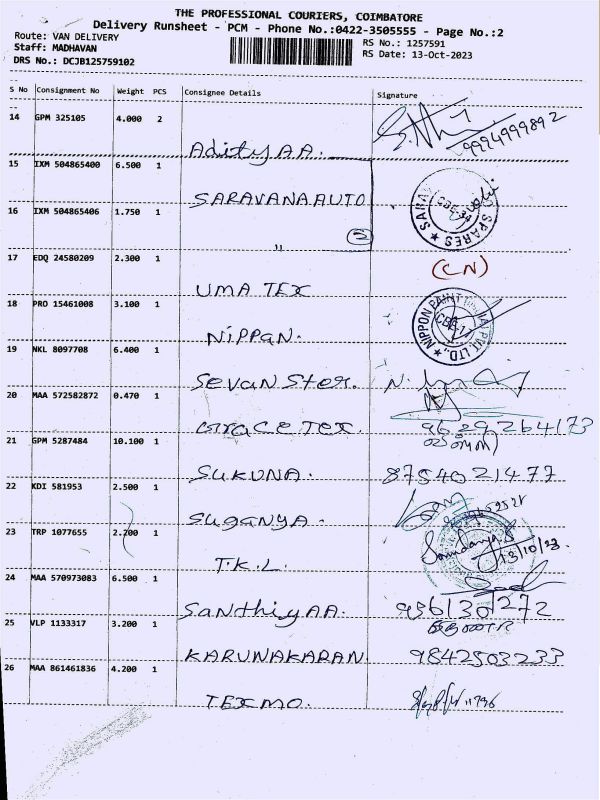 THE PROFESSIONAL COURIERS, COIMBATORE
Delivery Runsheet - PCM - Phone No.:0422-3505555 - Page No.:2
Route: VAN DELIVERY
Staff: MADHAVAN
DRS No.: DCJB125759102
RS No.: 1257591
RS Date: 13-Oct-2023
S No Consignment No Weight PCS Consignee Details Signature
14 GPM 325105 4.000 2
Adity AA. 9994999892
15 IXM 504865400 6.500 1
SARAVANA AUTO
16 IXM 504865406 1.750 1
" 2
SPARES
17 EDQ 24580209 2.300 1 (CN)
UMA TEX
18 PRO 15461008 3.100 1
NiPPaN. NIPPON PAINT PVT. LTD.,
19 NKL 8097708 6.400 1
Sevan Ster.
20 MAA 572582872 0.470 1
GraCe Tex. 9629264173
21 GPM 5287484 10.100 1
SUKUNA. 8754021477
22 KDI 581953 2.500 1
SUGANYA.
23 TRP 1077655 2.200 1
T.K.L. 13/10/23.
24 MAA 570973083 6.500 1
Santhiy AA. 9361301272
25 VLP 1133317 3.200 1
KARUNAKARAN. 9842503233
26 MAA 861461836 4.200 1
TEXMO.